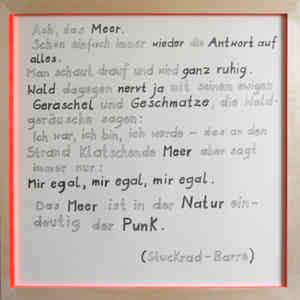 Ach, das Meer.
Schon einfach immer wieder die Antwort auf
alles.
Man schaut drauf und wird ganz ruhig.
Wald dagegen nervt ja mit seinem ewigen
Geraschel und Geschmatze, die Wald-
geräusche sagen:
Ich war, ich bin, ich werde – das an den
Strand Klatschende Meer aber sagt
immer nur:
Mir egal, mir egal, mir egal.
Das Meer ist in der Natur ein-
deutig der Punk.
(Stuckrad-Barre)